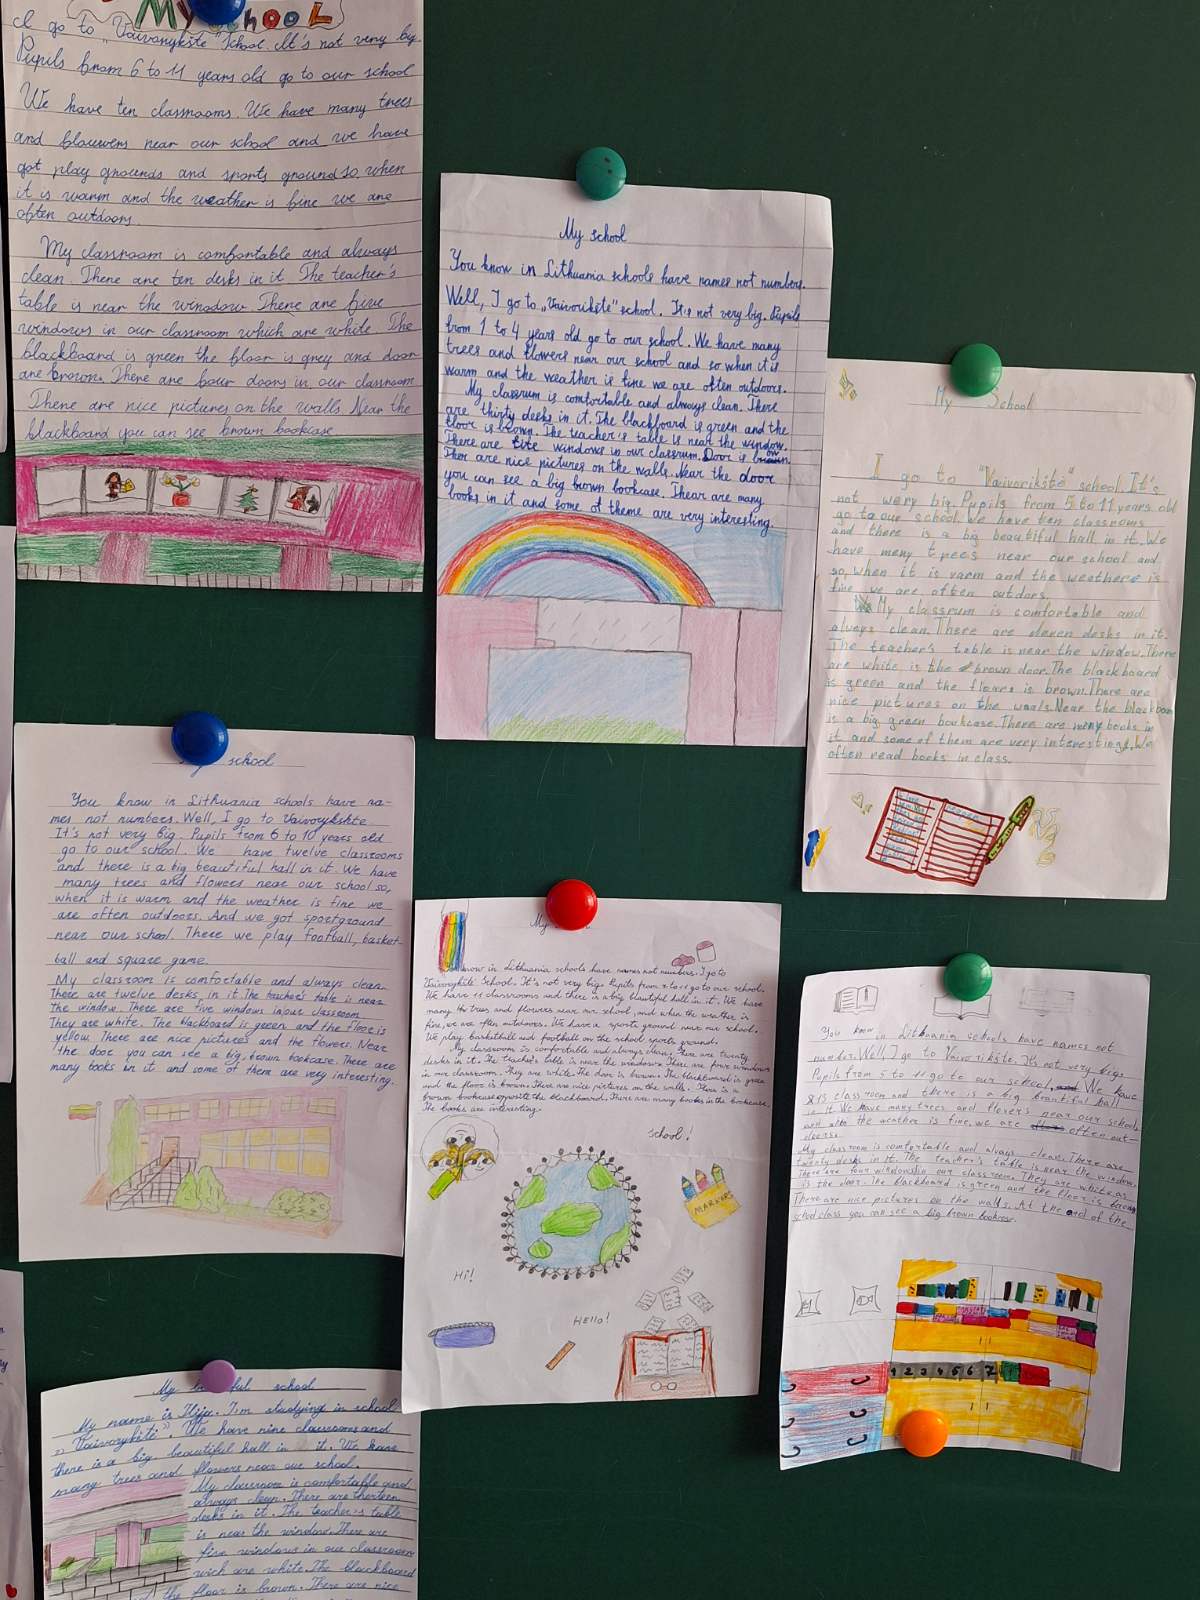 My SCHOOL
I go to „Vaivorykšte" School. It's not very big.
Pupils from 6 to 11 years old go to our school
We have ten classrooms. We have many trees
and flouwers near our school and we have
got play grounds and sports ground so when
it is warm and the weather is fine we are
often outdoors.
My classroom is comfortable and always
clean. There are ten desks in it. The teacher's
table is near the winndow. There are five
windows in our classroom which are white. The
blackboard is green the floor is grey and door
are brown. There are four doors in our classroom
There are nice pictures on the walls. Near the
blackboard you can see brown bookcase
My school
You know in Lithuania schools have names not numbers.
Well, I go to „Vaivorikštė" school. It is not very big. Pupils
from 1 to 4 years old go to our school. We have many
trees and flowers near our school and so when it is
warm and the weather is fine we are often outdoors.
My classrum is comfortable and always clean. There
are thirty desks in it. The blackboard is green and the
floor is brown. The teacher's table is near the window.
There are five windows in our classrum. Door is brown.
Ther are nice pictures on the walls. Near the door
you can see a big brown bookcase. Thear are many
books in it and some of theme are very interesting.
My School
I go to "Vaivorikštė" school. It's
not wery big. Pupils from 5 to 11 years old
go to our school. We have ten classrooms
and there is a big beautiful hall in it. We
have meny trees near our school and
so, when it is varm and the weathere is
fine we are often outdors.
My classrum is comfortable and
always clean. There are deven desks in it.
The teacher's table is near the window. There
are white is the brown door. The blackboard
is green and the floars is brown. There are
nice pictures on the waals. Near the blackboom
is a big green bookcase. There are meny books in
it and some of them are very interesting. We
often read books in class.
school
You know in Lithuania schools have na-
mes not numbers. Well, I go to Vaivorykshte
It's not very big. Pupils from 6 to 10 years old
go to our school. We have twelve classrooms
and there is a big beautiful hall in it. We have
many trees and flowers near our school so,
when it is warm and the weather is fine we
are often outdoors. And we got sportground
near our school. There we play football, basket-
ball and square game.
My classroom is comfortable and always clean.
There are twelve desks in it. The teacher's table is near
the window. There are five windows in our classroom
They are white. The blackboard is green and the floor is
yellow. There are nice pictures and the flowers. Near
the door you can see a big, brown bookcase. There are
many books in it and some of them are very interesting.
My
know in Lithuania schools have names not numbers. I go to
Vaivorykštė School. It's not very big. Pupils from to 11 go to our school.
We have 11 classrooms and there is a big beautiful hall in it. We have
many trees and flowers near our school, and when the weather is
fine, we are often outdoors. We have a sports ground near our school.
We play basketball and football on the school sports ground.
My classroom is comfortable and always clean. There are twenty
desks in it. The teacher's table is near the window. There are four windows
in our classroom. They are white. The door is brown. The blackboard is green
and the floor is brown. There are nice pictures on the walls. There is a
brown bookcase opposite the blackboard. There are many books in the bookcase.
The books are interesting.
School!
MARKERS
Hi!
HELLO!
You know in Lithuania schools have names not
number. Well, I go to Vaivorikštė. It's not very big.
Pupils from 5 to 11 go to our school, We have
class room and there is a big beautiful hall
in it. We have many trees and flovers near our school
the weather is fine, we are often out-
doorse.
My classroom is comfortable and always clean. There are
twenty desks in it. The teacher's table is near the window.
There are four windows in our classroom. They are white as
is the door. The blackboard is green and the floor is brown
There are nice pictures on the walls. At the end of the
school class you can see a big brown bookcase.
1 2 3 4 5 6 7
My school
My name is Ilja. I'm studying in school
„Vaivorykštė". We have nine classrooms and
there is a big beautiful hall in it. We have
many trees and flowers near our school.
My classroom is comfortable and
always clean. There are therteen
desks in it. The teacher's table
is near the window. There are
five windows in our classroom
wich are white. The blackboard
the floor is brown. There are nice